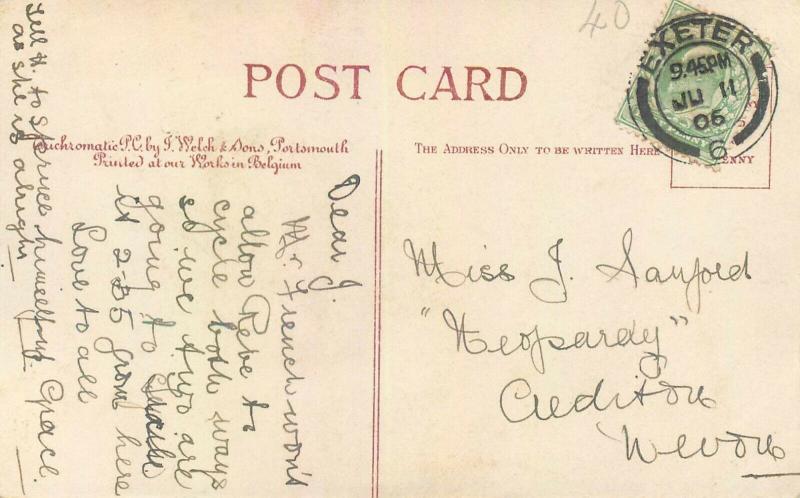 40
EXETER
9.45PM
JU 11
06
6
POST CARD
uichromatic P.C. by J. Welch & Sons, Portsmouth
Printed at our Works in Belgium
THE ADDRESS ONLY TO BE WRITTEN HERE
ENNY
Dear J.
Mr. French won't
allow Rene to
cycle both ways
so we two are
going to
at 2-25 from here
Love to all
Grace.
Tell H. to spruce himself up
as she is alright
Miss J. Sanford
"Neopardy"
Crediton
Devon